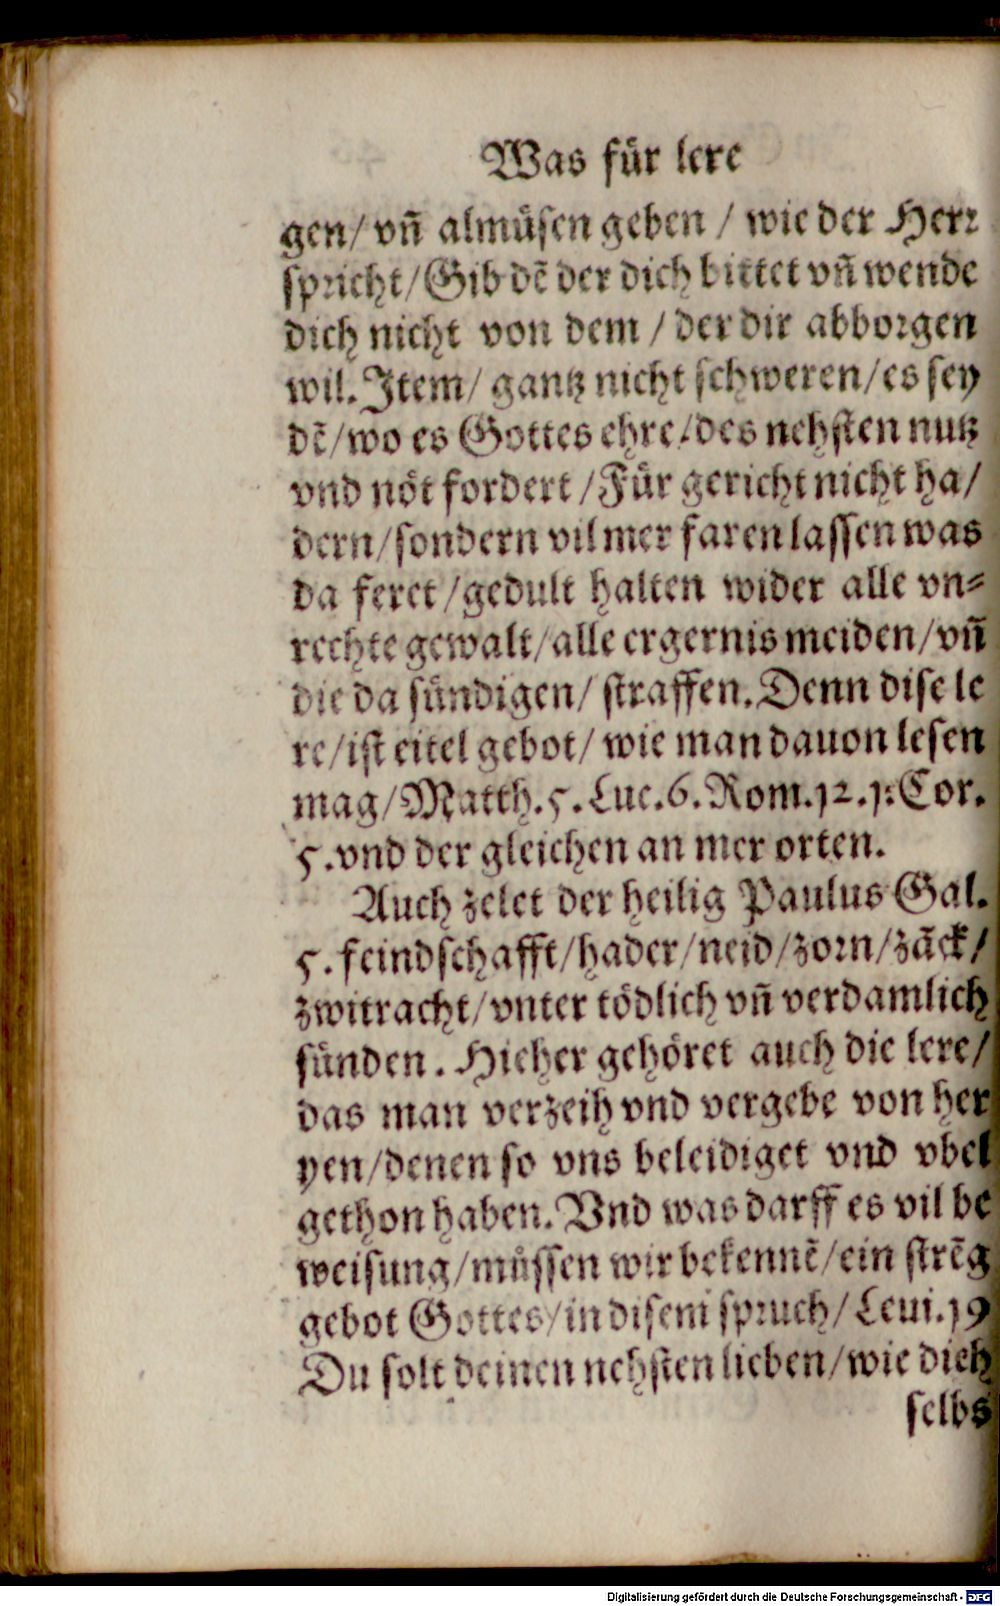 Was für lere
gen/ vñ almuͤsen geben / wie der Herr
spricht/ Gib dē der dich bittet vñ wende
dich nicht von dem / der dir abborgen
wil. Item/ gantz nicht schweren/ es sey
dē/ wo es Gottes ehre/ des nehsten nutz
vnd noͤt fordert / Fuͤr gericht nicht ha/
dern/ sondern vil mer faren lassen was
da feret / gedult halten wider alle vn⸗
rechte gewalt/ alle ergernis meiden/ vñ
die da suͤndigen/ straffen. Denn dise le
re/ ist eitel gebot/ wie man dauon lesen
mag/ Matth. 5. Luc. 6. Rom. 12. 1. Cor.
5. vnd der gleichen an mer orten.
Auch zelet der heilig Paulus Gal.
5. feindschafft/ hader/ neid/ zorn/ zāck/
zwitracht/ vnter toͤdlich vñ verdamlich
suͤnden. Hieher gehoͤret auch die lere/
das man verzeih vnd vergebe von her
yen/ denen so vns beleidiget vnd vbel
gethon haben. Vnd was darff es vil be
weisung/ muͤssen wir bekennē/ ein strēg
gebot Gottes/ in disem spruch/ Leui. 19
Du solt deinen nehsten lieben/ wie dich
selbs
Digitalisierung gefördert durch die Deutsche Forschungsgemeinschaft - DFG